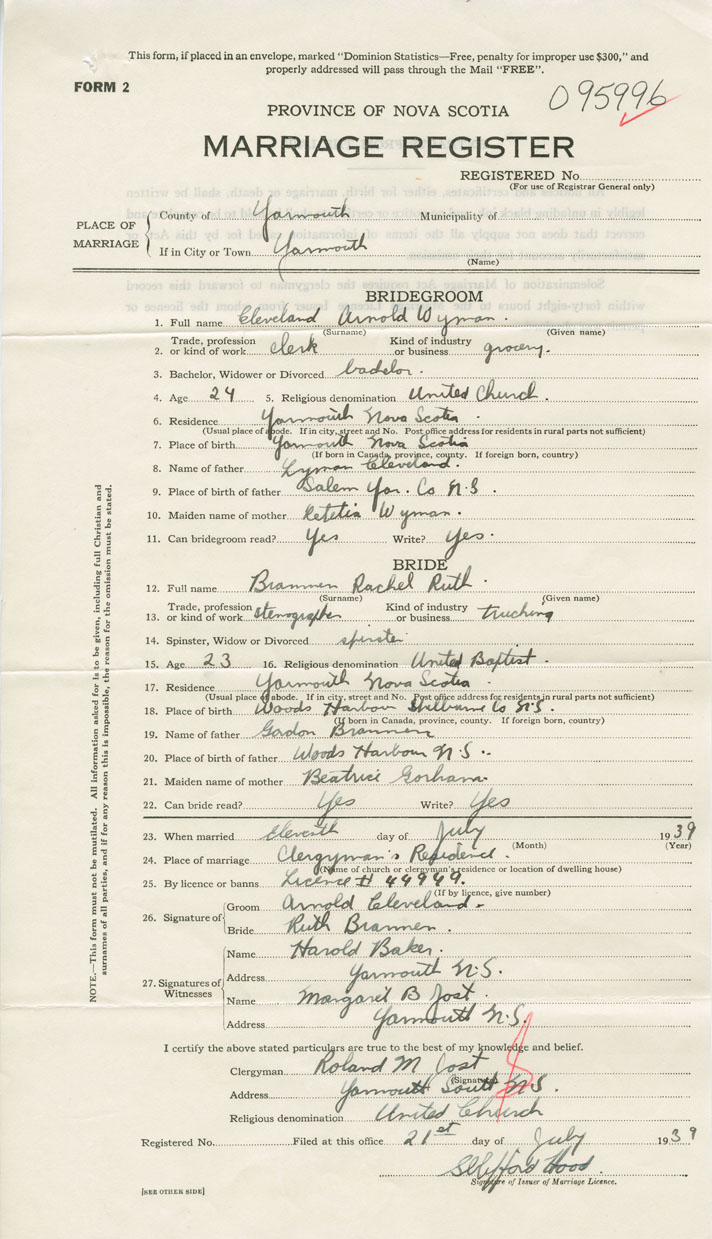 This form, if placed in an envelope, marked "Dominion Statistics—Free, penalty for improper use $300," and
properly addressed will pass through the Mail "FREE".
FORM 2
095996
PROVINCE OF NOVA SCOTIA
MARRIAGE REGISTER
REGISTERED No.
(For use of Registrar General only)
PLACE OF MARRIAGE
County of Yarmouth Municipality of
If in City or Town Yarmouth
(Name)
BRIDEGROOM
1. Full name Cleveland Arnold Wyman.
(Surname) (Given name)
2. Trade, profession or kind of work clerk Kind of industry or business grocery.
3. Bachelor, Widower or Divorced bachelor.
4. Age 24 5. Religious denomination United Church.
6. Residence Yarmouth Nova Scotia
(Usual place of abode. If in city, street and No. Post office address for residents in rural parts not sufficient)
7. Place of birth Yarmouth Nova Scotia
(If born in Canada, province, county. If foreign born, country)
8. Name of father Lyman Cleveland.
9. Place of birth of father Salem Yar. Co N.S
10. Maiden name of mother Letetia Wyman.
11. Can bridegroom read? Yes Write? Yes.
BRIDE
12. Full name Brannen Rachel Ruth.
(Surname) (Given name)
13. Trade, profession or kind of work stenographer Kind of industry or business trucking
14. Spinster, Widow or Divorced spinster
15. Age 23 16. Religious denomination United Baptist.
17. Residence Yarmouth Nova Scotia
(Usual place of abode. If in city, street and No. Post office address for residents in rural parts not sufficient)
18. Place of birth Woods Harbour Shelburne Co N.S.
(If born in Canada, province, county. If foreign born, country)
19. Name of father Gordon Brannen
20. Place of birth of father Woods Harbour N.S.
21. Maiden name of mother Beatrice Gorham.
22. Can bride read? Yes Write? Yes
23. When married eleventh day of July 1939
(Month) (Year)
24. Place of marriage Clergyman's Residence.
(Name of church or clergyman's residence or location of dwelling house)
25. By licence or banns Licence # 44949.
(If by licence, give number)
26. Signature of
Groom Arnold Cleveland.
Bride Ruth Brannen.
27. Signatures of Witnesses
Name Harold Baker.
Address Yarmouth N.S.
Name Margaret B Jost.
Address Yarmouth N.S.
I certify the above stated particulars are true to the best of my knowledge and belief.
Clergyman Roland M Jost
(Signature)
Address Yarmouth South N.S.
Religious denomination United Church
Registered No. Filed at this office 21st day of July 1939
Signature of Issuer of Marriage Licence.
[SEE OTHER SIDE]
NOTE.—This form must not be mutilated. All information asked for is to be given, including full Christian and
surnames of all parties, and if for any reason this is impossible, the reason for the omission must be stated.